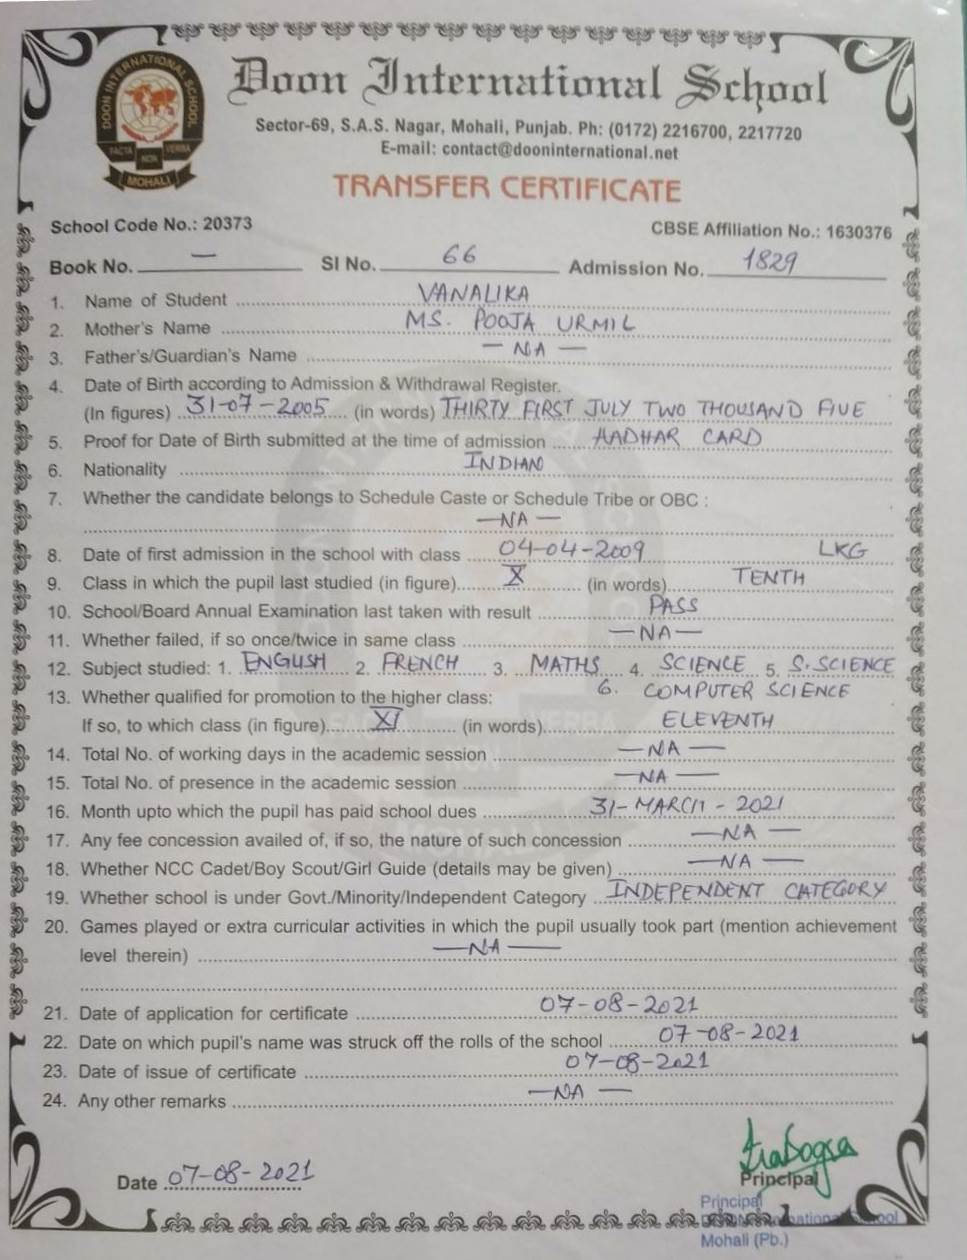 DOON INTERNATIONAL SCHOOL
FACTA NON VERBA
MOHALI
Doon International School
Sector-69, S.A.S. Nagar, Mohali, Punjab. Ph: (0172) 2216700, 2217720
E-mail: contact@dooninternational.net
TRANSFER CERTIFICATE
School Code No.: 20373 CBSE Affiliation No.: 1630376
Book No. — SI No. 66 Admission No. 1829
1. Name of Student VANALIKA
2. Mother's Name MS. POOJA URMIL
3. Father's/Guardian's Name — NA —
4. Date of Birth according to Admission & Withdrawal Register.
(In figures) 31-07-2005 (in words) THIRTY FIRST JULY TWO THOUSAND FIVE
5. Proof for Date of Birth submitted at the time of admission AADHAR CARD
6. Nationality INDIAN
7. Whether the candidate belongs to Schedule Caste or Schedule Tribe or OBC :
—NA—
8. Date of first admission in the school with class 04-04-2009 LKG
9. Class in which the pupil last studied (in figure) X (in words) TENTH
10. School/Board Annual Examination last taken with result PASS
11. Whether failed, if so once/twice in same class —NA—
12. Subject studied: 1. ENGLISH 2. FRENCH 3. MATHS 4. SCIENCE 5. S.SCIENCE
6. COMPUTER SCIENCE
13. Whether qualified for promotion to the higher class:
If so, to which class (in figure) XI (in words) ELEVENTH
14. Total No. of working days in the academic session —NA—
15. Total No. of presence in the academic session —NA—
16. Month upto which the pupil has paid school dues 31-MARCH-2021
17. Any fee concession availed of, if so, the nature of such concession —NA—
18. Whether NCC Cadet/Boy Scout/Girl Guide (details may be given) —NA—
19. Whether school is under Govt./Minority/Independent Category INDEPENDENT CATEGORY
20. Games played or extra curricular activities in which the pupil usually took part (mention achievement
level therein) —NA—
21. Date of application for certificate 07-08-2021
22. Date on which pupil's name was struck off the rolls of the school 07-08-2021
23. Date of issue of certificate 07-08-2021
24. Any other remarks —NA—
Date 07-08-2021 Principal
Principal
School
Mohali (Pb.)